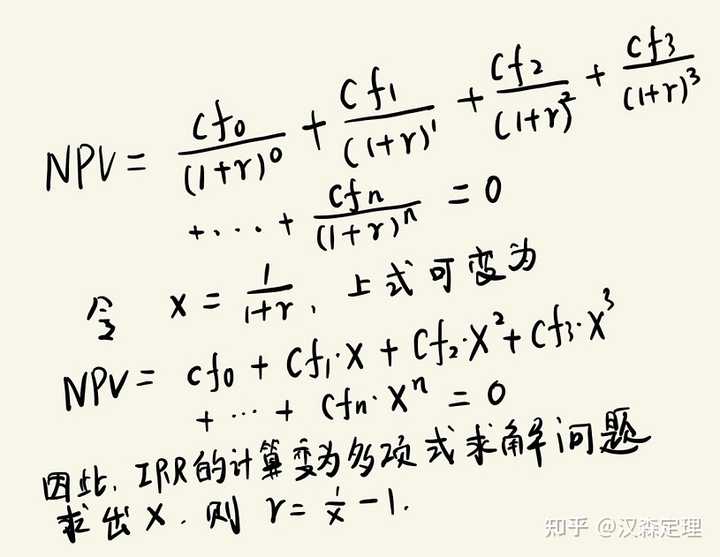 NPV = Cf₀/(1+r)⁰ + Cf₁/(1+r)¹ + Cf₂/(1+r)² + Cf₃/(1+r)³
+ ... + Cfn/(1+r)ⁿ = 0
令 x = 1/(1+r), 上式可变为
NPV = Cf₀ + Cf₁·X + Cf₂·X² + Cf₃·X³
+ ... + Cfn·Xⁿ = 0
因此, IRR的计算变为多项式求解问题
求出X, 则 r = 1/x - 1.
知乎 @汉森定理